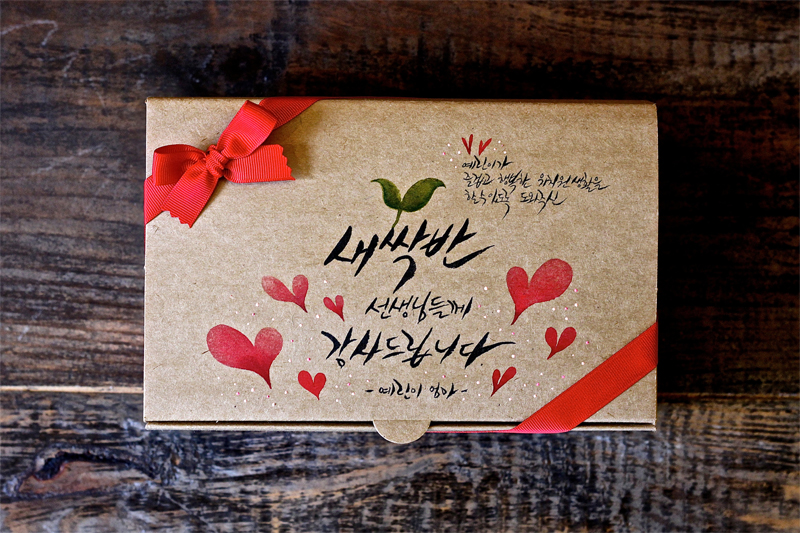 예린이가
즐겁고 행복한 유치원생활을
할 수 있도록 도와주신
새싹반
선생님들께
감사드립니다.
- 예린이 엄마 -